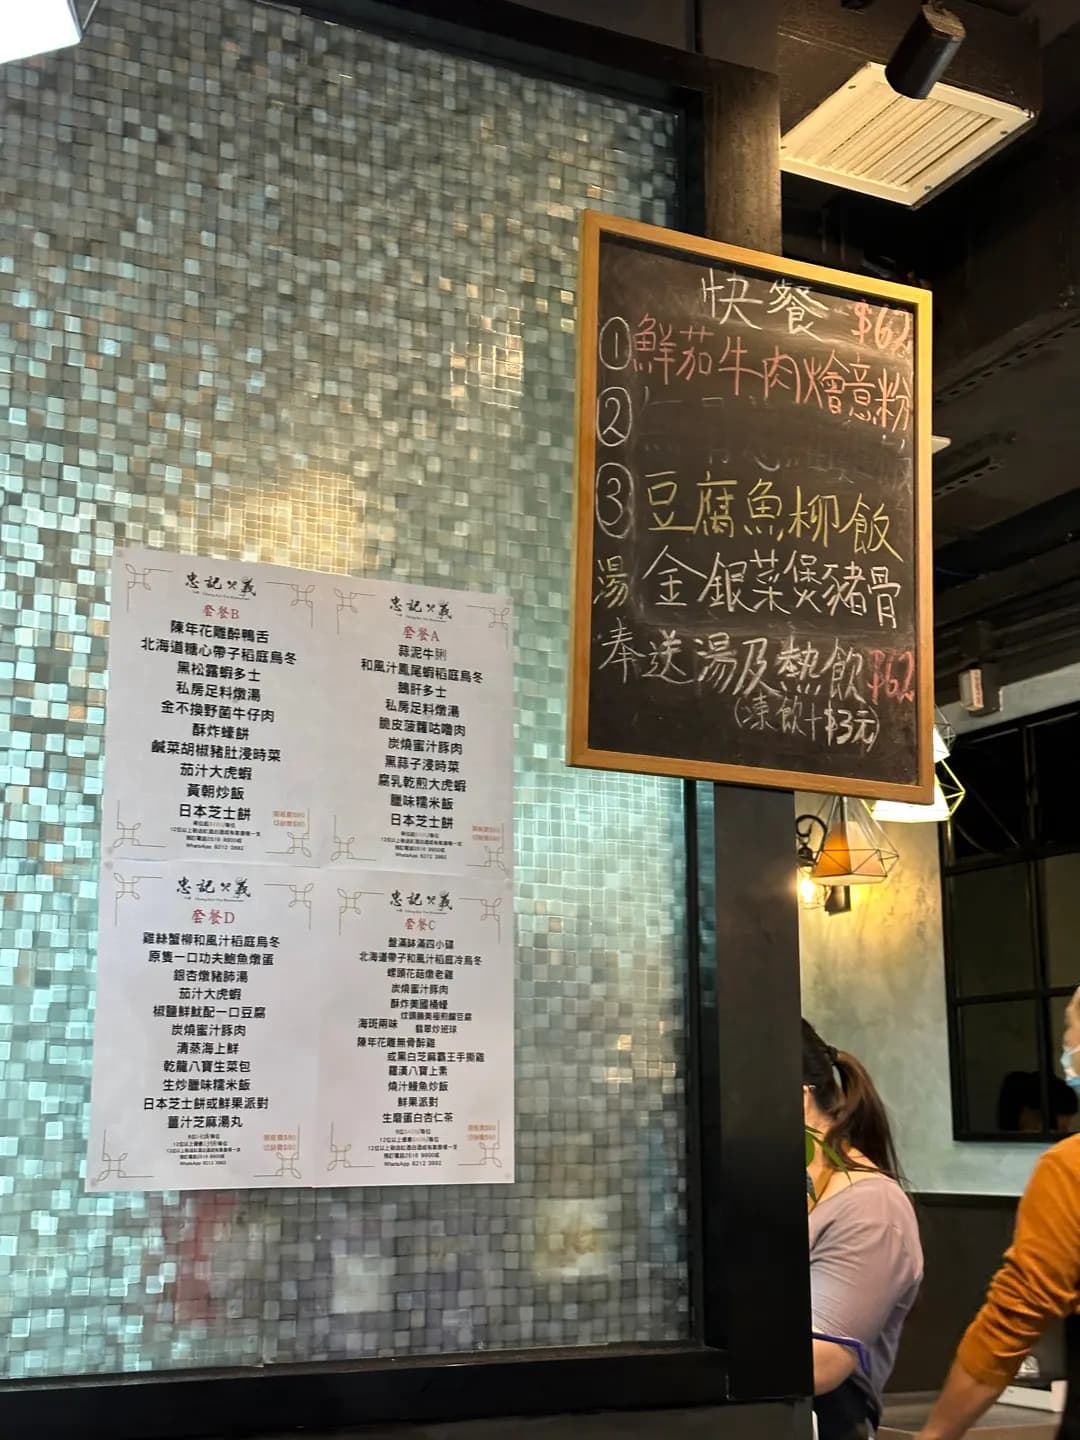 快餐 $62
①鮮茄牛肉燴意粉
②
③豆腐魚柳飯
湯 金銀菜煲豬骨
奉送湯及熱飲$62
(凍飲+$3元)
忠記火義
套餐B
陳年花雕醉鴨舌
北海道糖心帶子稻庭烏冬
黑松露蝦多士
私房足料燉湯
金不換野菌牛仔肉
酥炸蠔餅
鹹菜胡椒豬肚浸時菜
茄汁大虎蝦
黃朝炒飯
日本芝士餅
WhatsApp 6212 3992
忠記火義
套餐A
蒜泥牛𦟌
和風汁鳳尾蝦稻庭烏冬
鵝肝多士
私房足料燉湯
脆皮菠蘿咕嚕肉
炭燒蜜汁豚肉
黑蒜子浸時菜
腐乳乾煎大虎蝦
臘味糯米飯
日本芝士餅
WhatsApp 6212 3992
忠記火義
套餐D
雞絲蟹柳和風汁稻庭烏冬
原隻一口功夫鮑魚燉蛋
銀杏燉豬肺湯
茄汁大虎蝦
椒鹽鮮魷配一口豆腐
炭燒蜜汁豚肉
清蒸海上鮮
乾龍八寶生菜包
生炒臘味糯米飯
日本芝士餅或鮮果派對
薑汁芝麻湯丸
WhatsApp 6212 3992
忠記火義
套餐C
盤滿缽滿四小碟
北海道帶子和風汁稻庭冷烏冬
螺頭花菇燉老雞
炭燒蜜汁豚肉
酥炸美國桶蠔
海斑兩味
翡翠炒班球
陳年花雕無骨醉雞
或黑白芝麻霸王手撕雞
羅漢八寶上素
燒汁鰻魚炒飯
鮮果派對
生磨蛋白杏仁茶
WhatsApp 6212 3992